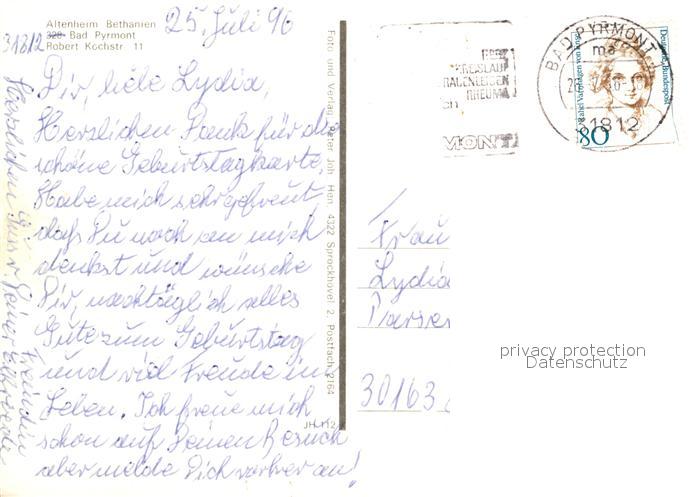 Altenheim Bethanien
328 Bad Pyrmont
Robert Kochstr. 11
31812
25. Juli 96
Dir, liebe Lydia,
Herzlichen Dank für die
schöne Geburtstagkarte,
Habe mich sehr gefreut
daß Du noch an mich
denkst und wünsche
Dir, nachträglich alles
Gute zum Geburtstag
und viel Freude im
Leben. Ich freue mich
schon auf Deinen Besuch
aber melde Dich vorher an!
Herzlichen Gruss v. Deiner Freundin
Foto und Verlag Peter Joh Hen 4322 Sprockhövel 2, Postfach 2164
JH 112
HERZ
KREISLAUF
FRAUENLEIDEN
RHEUMA
MONT
BAD PYRMONT
ma
31812
Deutsche Bundespost
80
Frau
Lydia
30163
privacy protection
Datenschutz